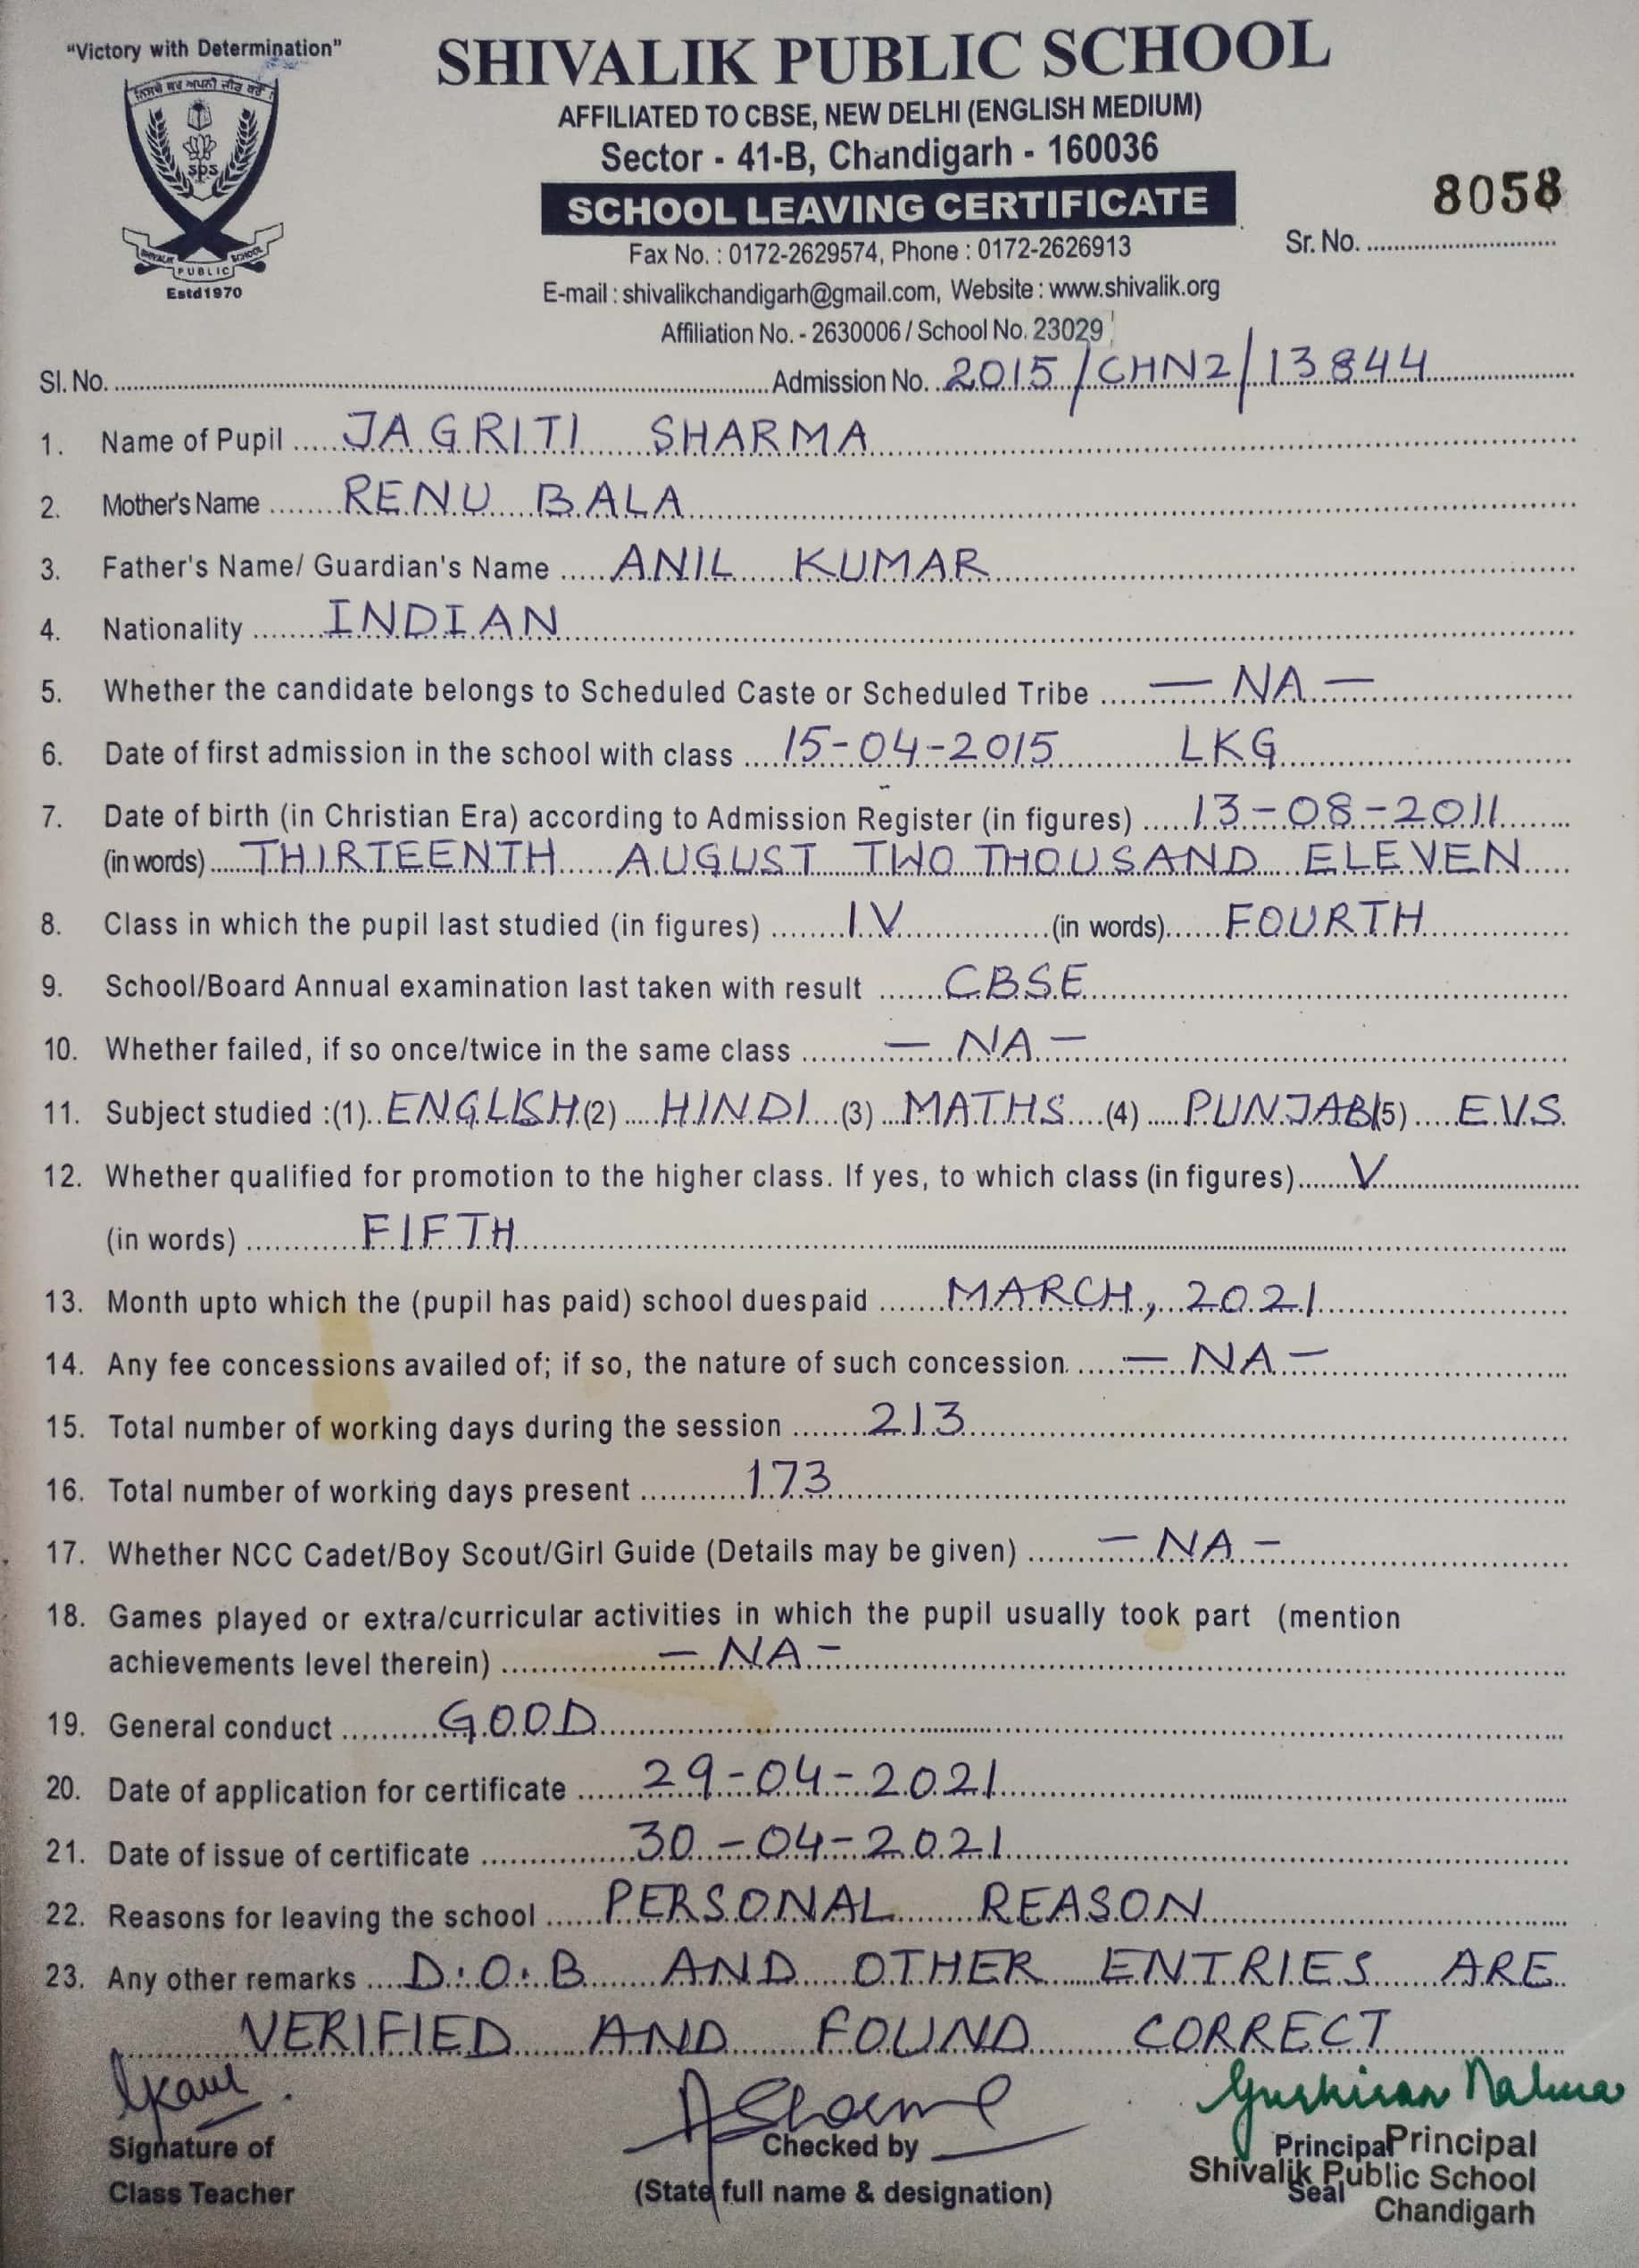 "Victory with Determination"
SHIVALIK PUBLIC SCHOOL
AFFILIATED TO CBSE, NEW DELHI (ENGLISH MEDIUM)
Sector - 41-B, Chandigarh - 160036
SCHOOL LEAVING CERTIFICATE
8058
Sr. No. ..............................
Fax No. : 0172-2629574, Phone : 0172-2626913
E-mail : shivalikchandigarh@gmail.com, Website : www.shivalik.org
Affiliation No. - 2630006 / School No. 23029
sps
SHIVALIK PUBLIC SCHOOL
Estd 1970
Sl. No. .............................. Admission No. 2015/CHN2/13844
1. Name of Pupil ..... JAGRITI SHARMA
2. Mother's Name ........ RENU BALA
3. Father's Name/ Guardian's Name ..... ANIL KUMAR
4. Nationality ........ INDIAN
5. Whether the candidate belongs to Scheduled Caste or Scheduled Tribe ..... — NA —
6. Date of first admission in the school with class .... 15-04-2015 LKG
7. Date of birth (in Christian Era) according to Admission Register (in figures) ..... 13-08-2011
(in words) ..... THIRTEENTH AUGUST TWO THOUSAND ELEVEN
8. Class in which the pupil last studied (in figures) ........ IV (in words) ...... FOURTH
9. School/Board Annual examination last taken with result ....... CBSE
10. Whether failed, if so once/twice in the same class ......... — NA —
11. Subject studied :(1).. ENGLISH (2) ..... HINDI (3) ... MATHS (4) ..... PUNJABI (5) ..... E.V.S.
12. Whether qualified for promotion to the higher class. If yes, to which class (in figures)....... V
(in words) ............ FIFTH
13. Month upto which the (pupil has paid) school dues paid ....... MARCH, 2021
14. Any fee concessions availed of; if so, the nature of such concession. ..... — NA —
15. Total number of working days during the session ........ 213
16. Total number of working days present ........... 173
17. Whether NCC Cadet/Boy Scout/Girl Guide (Details may be given) ........ — NA —
18. Games played or extra/curricular activities in which the pupil usually took part (mention
achievements level therein) ................ — NA —
19. General conduct .......... GOOD
20. Date of application for certificate ....... 29-04-2021
21. Date of issue of certificate ............... 30-04-2021
22. Reasons for leaving the school ...... PERSONAL REASON
23. Any other remarks .... D.O.B AND OTHER ENTRIES ARE
VERIFIED AND FOUND CORRECT
Signature of
Class Teacher
Checked by
(State full name & designation)
Principal
Seal
Principal
Shivalik Public School
Chandigarh